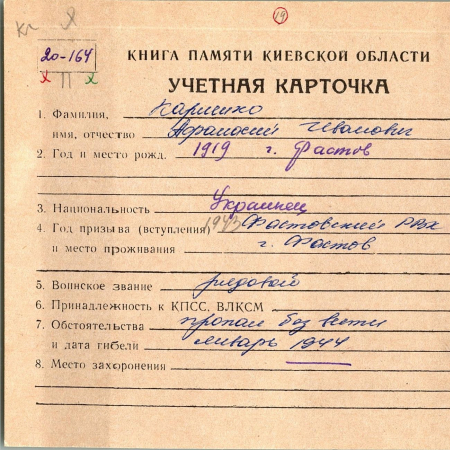 14
20-164
КНИГА ПАМЯТИ КИЕВСКОЙ ОБЛАСТИ
УЧЕТНАЯ КАРТОЧКА
1. Фамилия,
имя, отчество Иванович
2. Год и место рожд. 1919 г. Фастов
3. Национальность Украинец
4. Год призыва (вступления) 1943 Фастовский РВК
и место проживания г. Фастов
5. Воинское звание рядовой
6. Принадлежность к КПСС, ВЛКСМ
7. Обстоятельства пропал без вести
и дата гибели январь 1944
8. Место захоронения